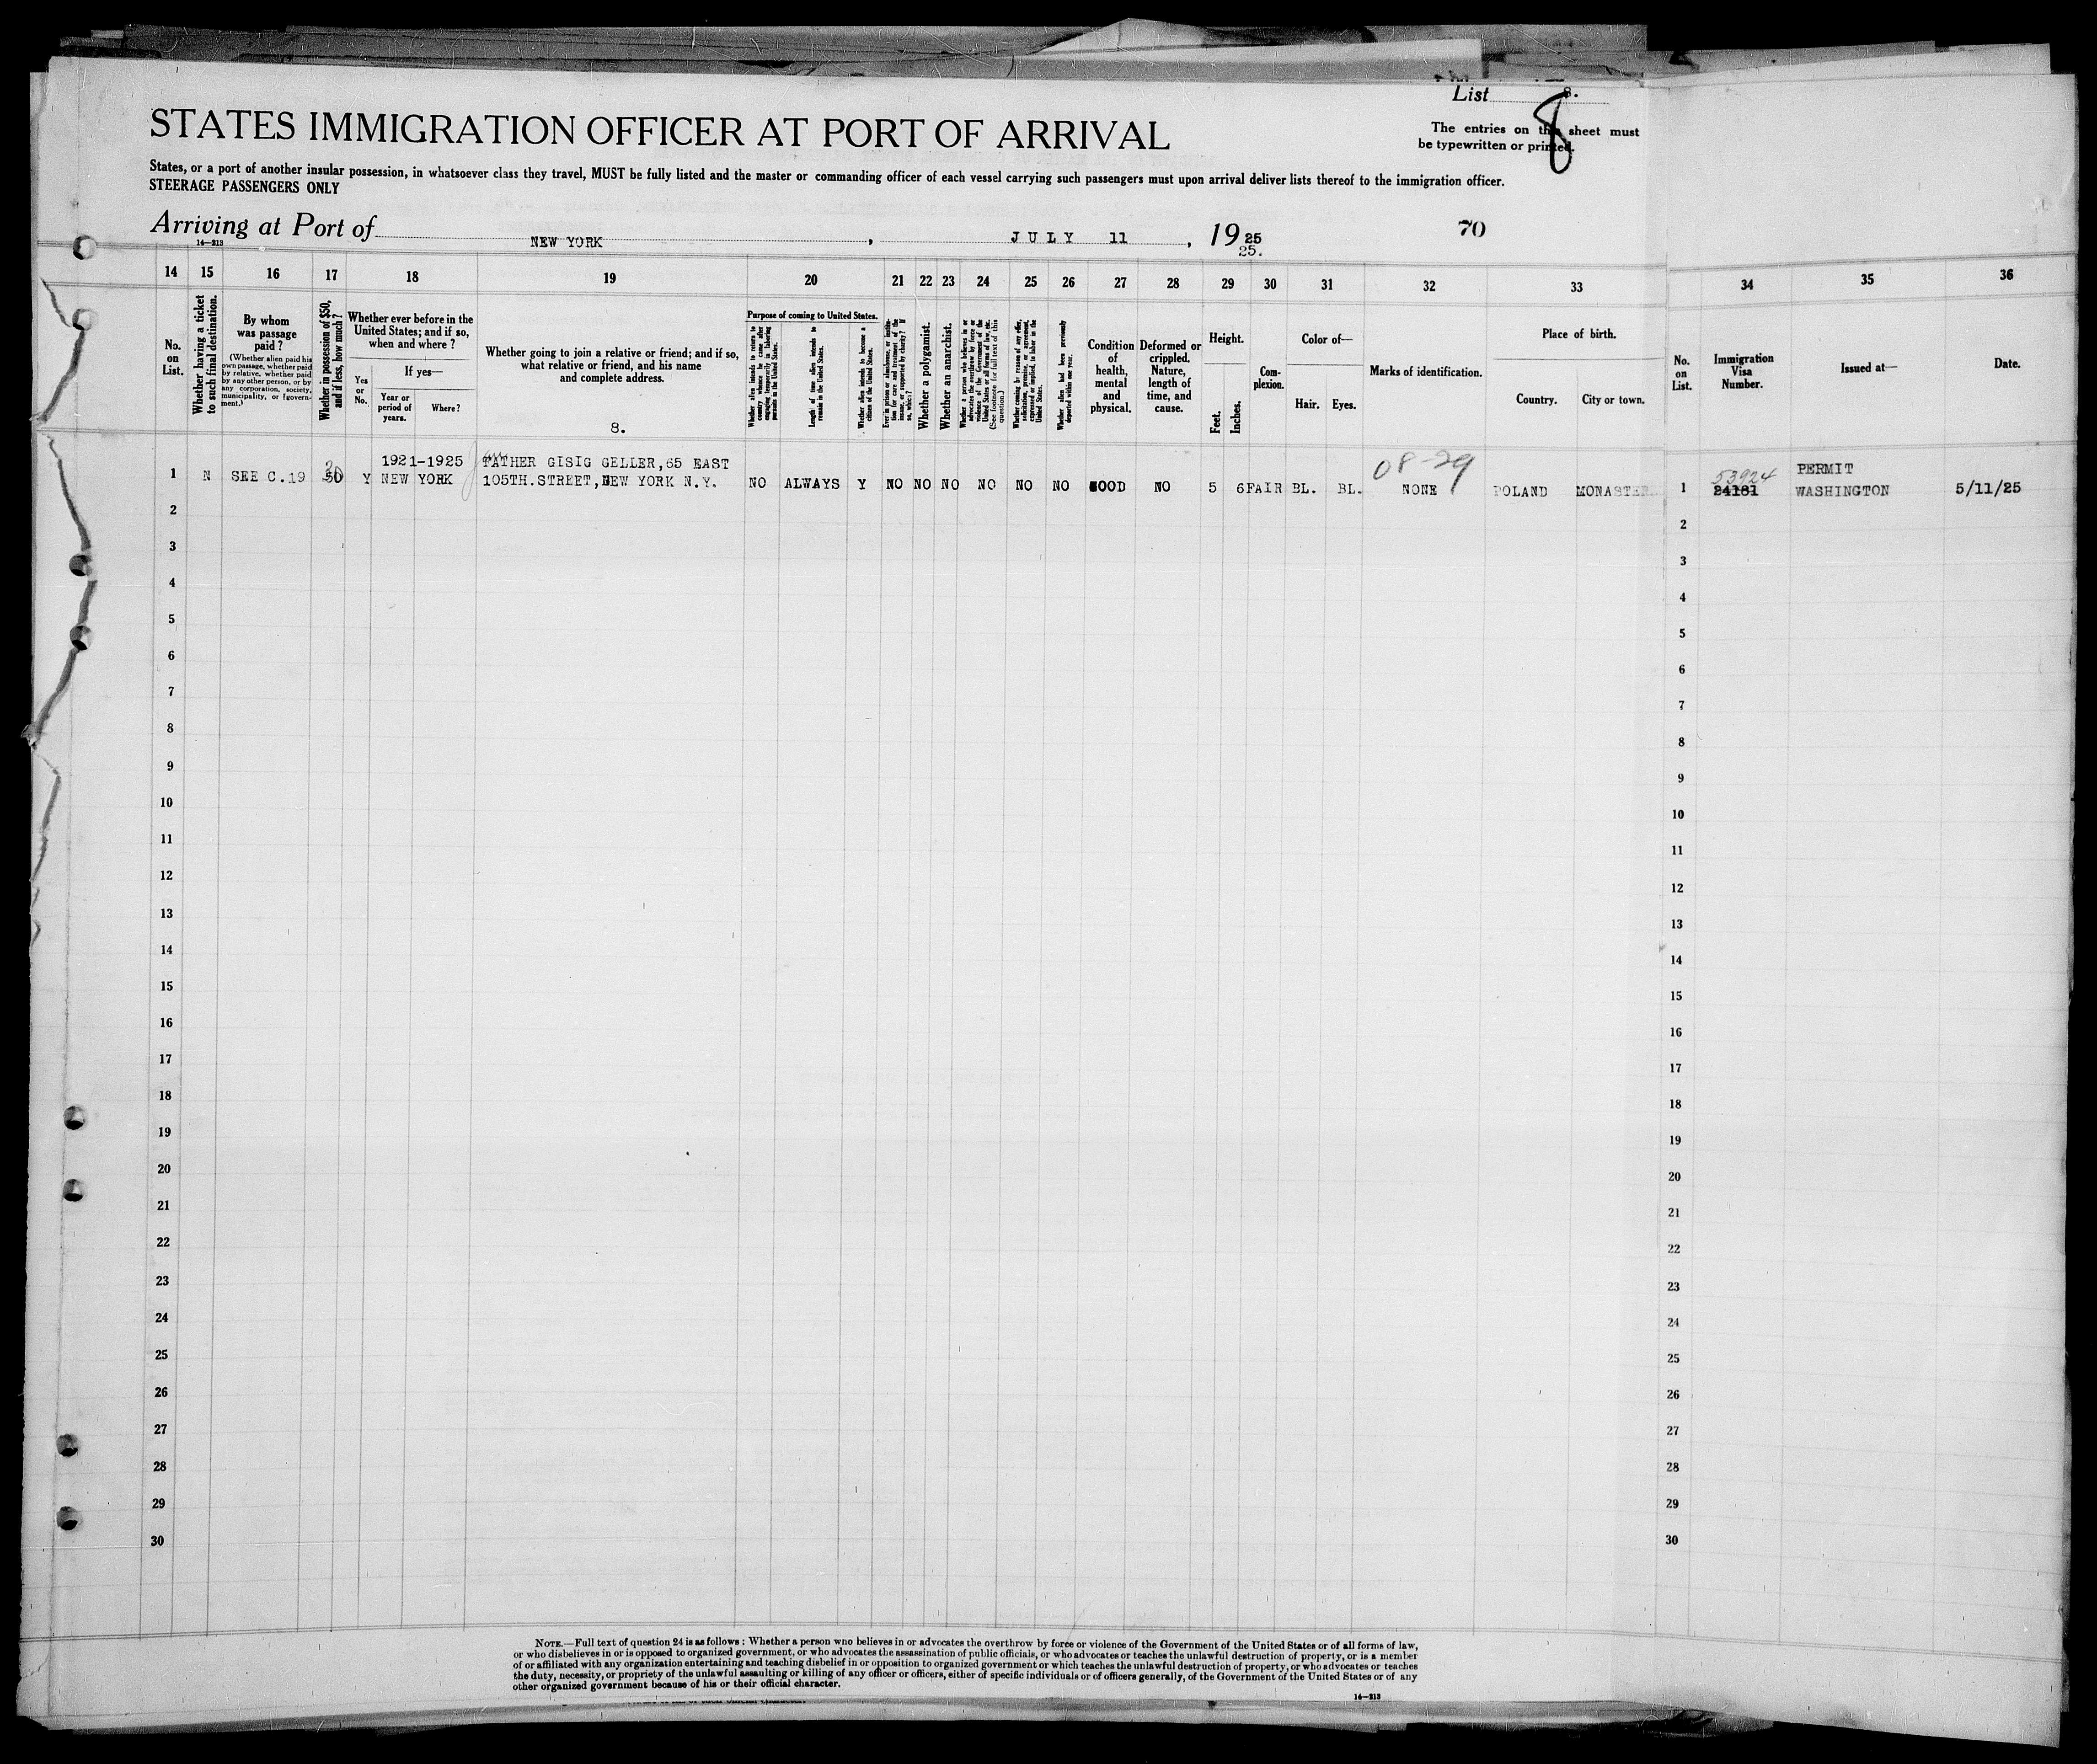 List 8.
8
STATES IMMIGRATION OFFICER AT PORT OF ARRIVAL
The entries on this sheet must
be typewritten or printed.
States, or a port of another insular possession, in whatsoever class they travel, MUST be fully listed and the master or commanding officer of each vessel carrying such passengers must upon arrival deliver lists thereof to the immigration officer.
STEERAGE PASSENGERS ONLY
Arriving at Port of NEW YORK, JULY 11, 1925
25.
70
14—213
14 15 16 17 18 19 20 21 22 23 24 25 26 27 28 29 30 31 32 33 34 35 36
No. on List.
Whether having a ticket to such final destination.
By whom was passage paid?
(Whether alien paid his own passage, whether paid by relative, whether paid by any other person, or by any corporation, society, municipality, or government.)
Whether in possession of $50, and if less, how much?
Whether ever before in the United States; and if so, when and where?
Yes or No.
If yes—
Year or period of years.
Where?
Whether going to join a relative or friend; and if so, what relative or friend, and his name and complete address.
8.
Purpose of coming to United States.
Whether alien intends to return to country whence he came after engaging temporarily in laboring pursuits in the United States.
Length of time alien intends to remain in the United States.
Whether alien intends to become a citizen of the United States.
Ever in prison or almshouse, or institution for care and treatment of the insane, or supported by charity? If so, which?
Whether a polygamist.
Whether an anarchist.
Whether a person who believes in or advocates the overthrow by force or violence of the Government of the United States or all forms of law, etc. (See footnote for full text of this question.)
Whether coming by reason of any offer, solicitation, promise, or agreement, expressed or implied, to labor in the United States.
Whether alien had been previously deported within one year.
Condition of health, mental and physical.
Deformed or crippled. Nature, length of time, and cause.
Height.
Feet. Inches.
Complexion.
Color of—
Hair. Eyes.
Marks of identification.
Place of birth.
Country. City or town.
No. on List.
Immigration Visa Number.
Issued at—
Date.
1 N SEE C.19 50 30 Y 1921-1925 NEW YORK FATHER GISIG GELLER,65 EAST
105TH.STREET,NEW YORK N.Y. NO ALWAYS Y NO NO NO NO NO NO GOOD NO 5 6 FAIR BL. BL. 08-29 NONE POLAND MONASTER 1 53924 24181 PERMIT WASHINGTON 5/11/25
2 2
3 3
4 4
5 5
6 6
7 7
8 8
9 9
10 10
11 11
12 12
13 13
14 14
15 15
16 16
17 17
18 18
19 19
20 20
21 21
22 22
23 23
24 24
25 25
26 26
27 27
28 28
29 29
30 30
NOTE.—Full text of question 24 is as follows: Whether a person who believes in or advocates the overthrow by force or violence of the Government of the United States or of all forms of law,
or who disbelieves in or is opposed to organized government, or who advocates the assassination of public officials, or who advocates or teaches the unlawful destruction of property, or is a member
of or affiliated with any organization entertaining and teaching disbelief in or opposition to organized government or which teaches the unlawful destruction of property, or who advocates or teaches
the duty, necessity, or propriety of the unlawful assaulting or killing of any officer or officers, either of specific individuals or of officers generally, of the Government of the United States or of any
other organized government because of his or their official character.
14—213